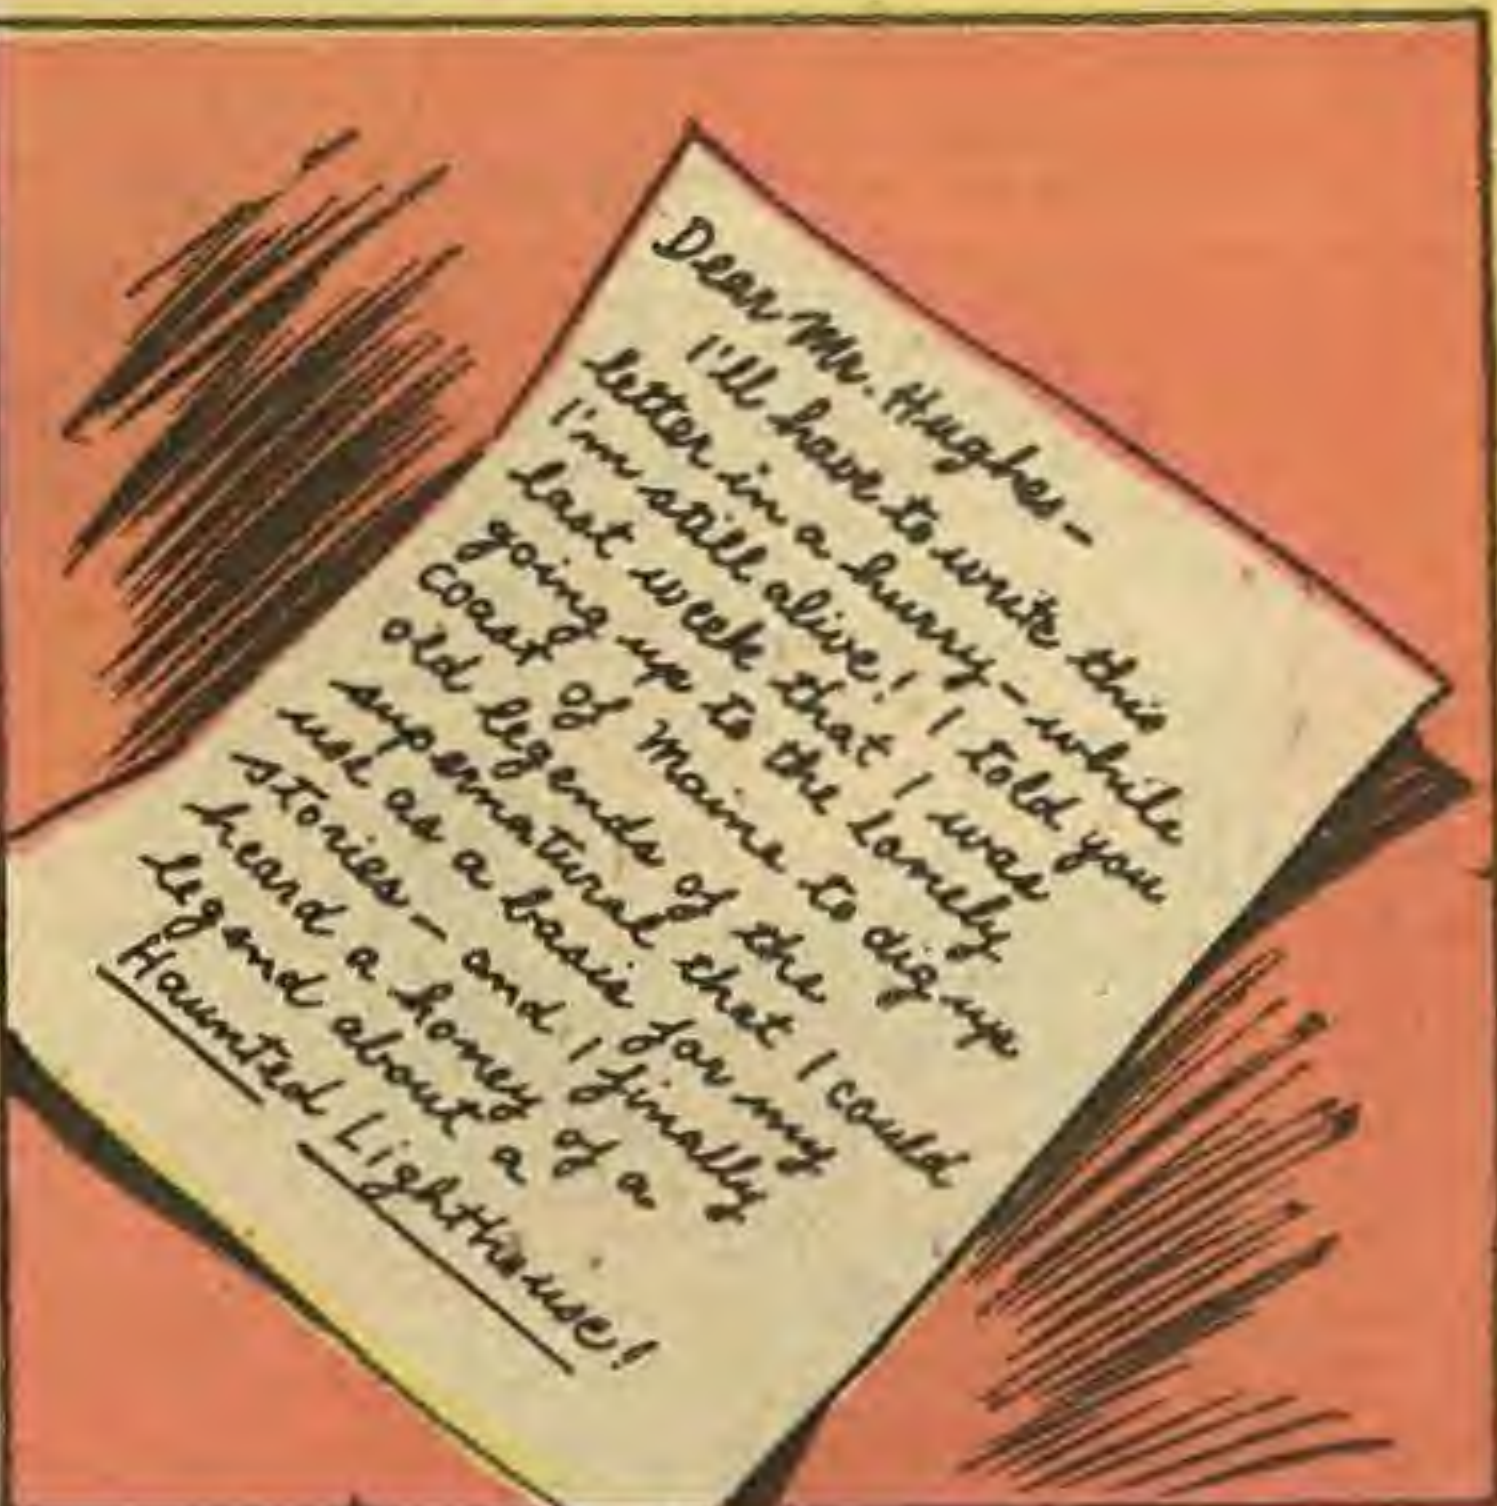 Dear Mr. Hughes-
I'll have to write this
letter in a hurry - while
I'm still alive! I told you
last week that I was
going up to the lonely
coast of Maine to dig up
old legends of the
supernatural that I could
use as a basis for my
stories - and I finally
heard a honey of a
legend about a
Haunted Lighthouse!